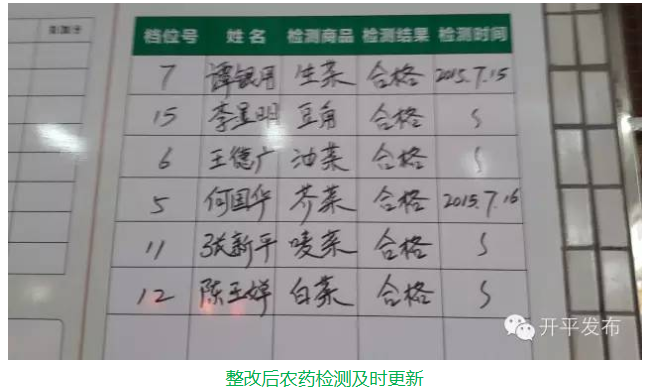 档位号 姓名 检测商品 检测结果 检测时间
7 谭银用 生菜 合格 2015.7.15
15 李星明 豆角 合格 〃
6 王德广 油菜 合格 〃
5 何国华 芥菜 合格 2015.7.16
11 张新平 唛菜 合格 〃
12 陈玉婵 白菜 合格 〃
开平发布
整改后农药检测及时更新